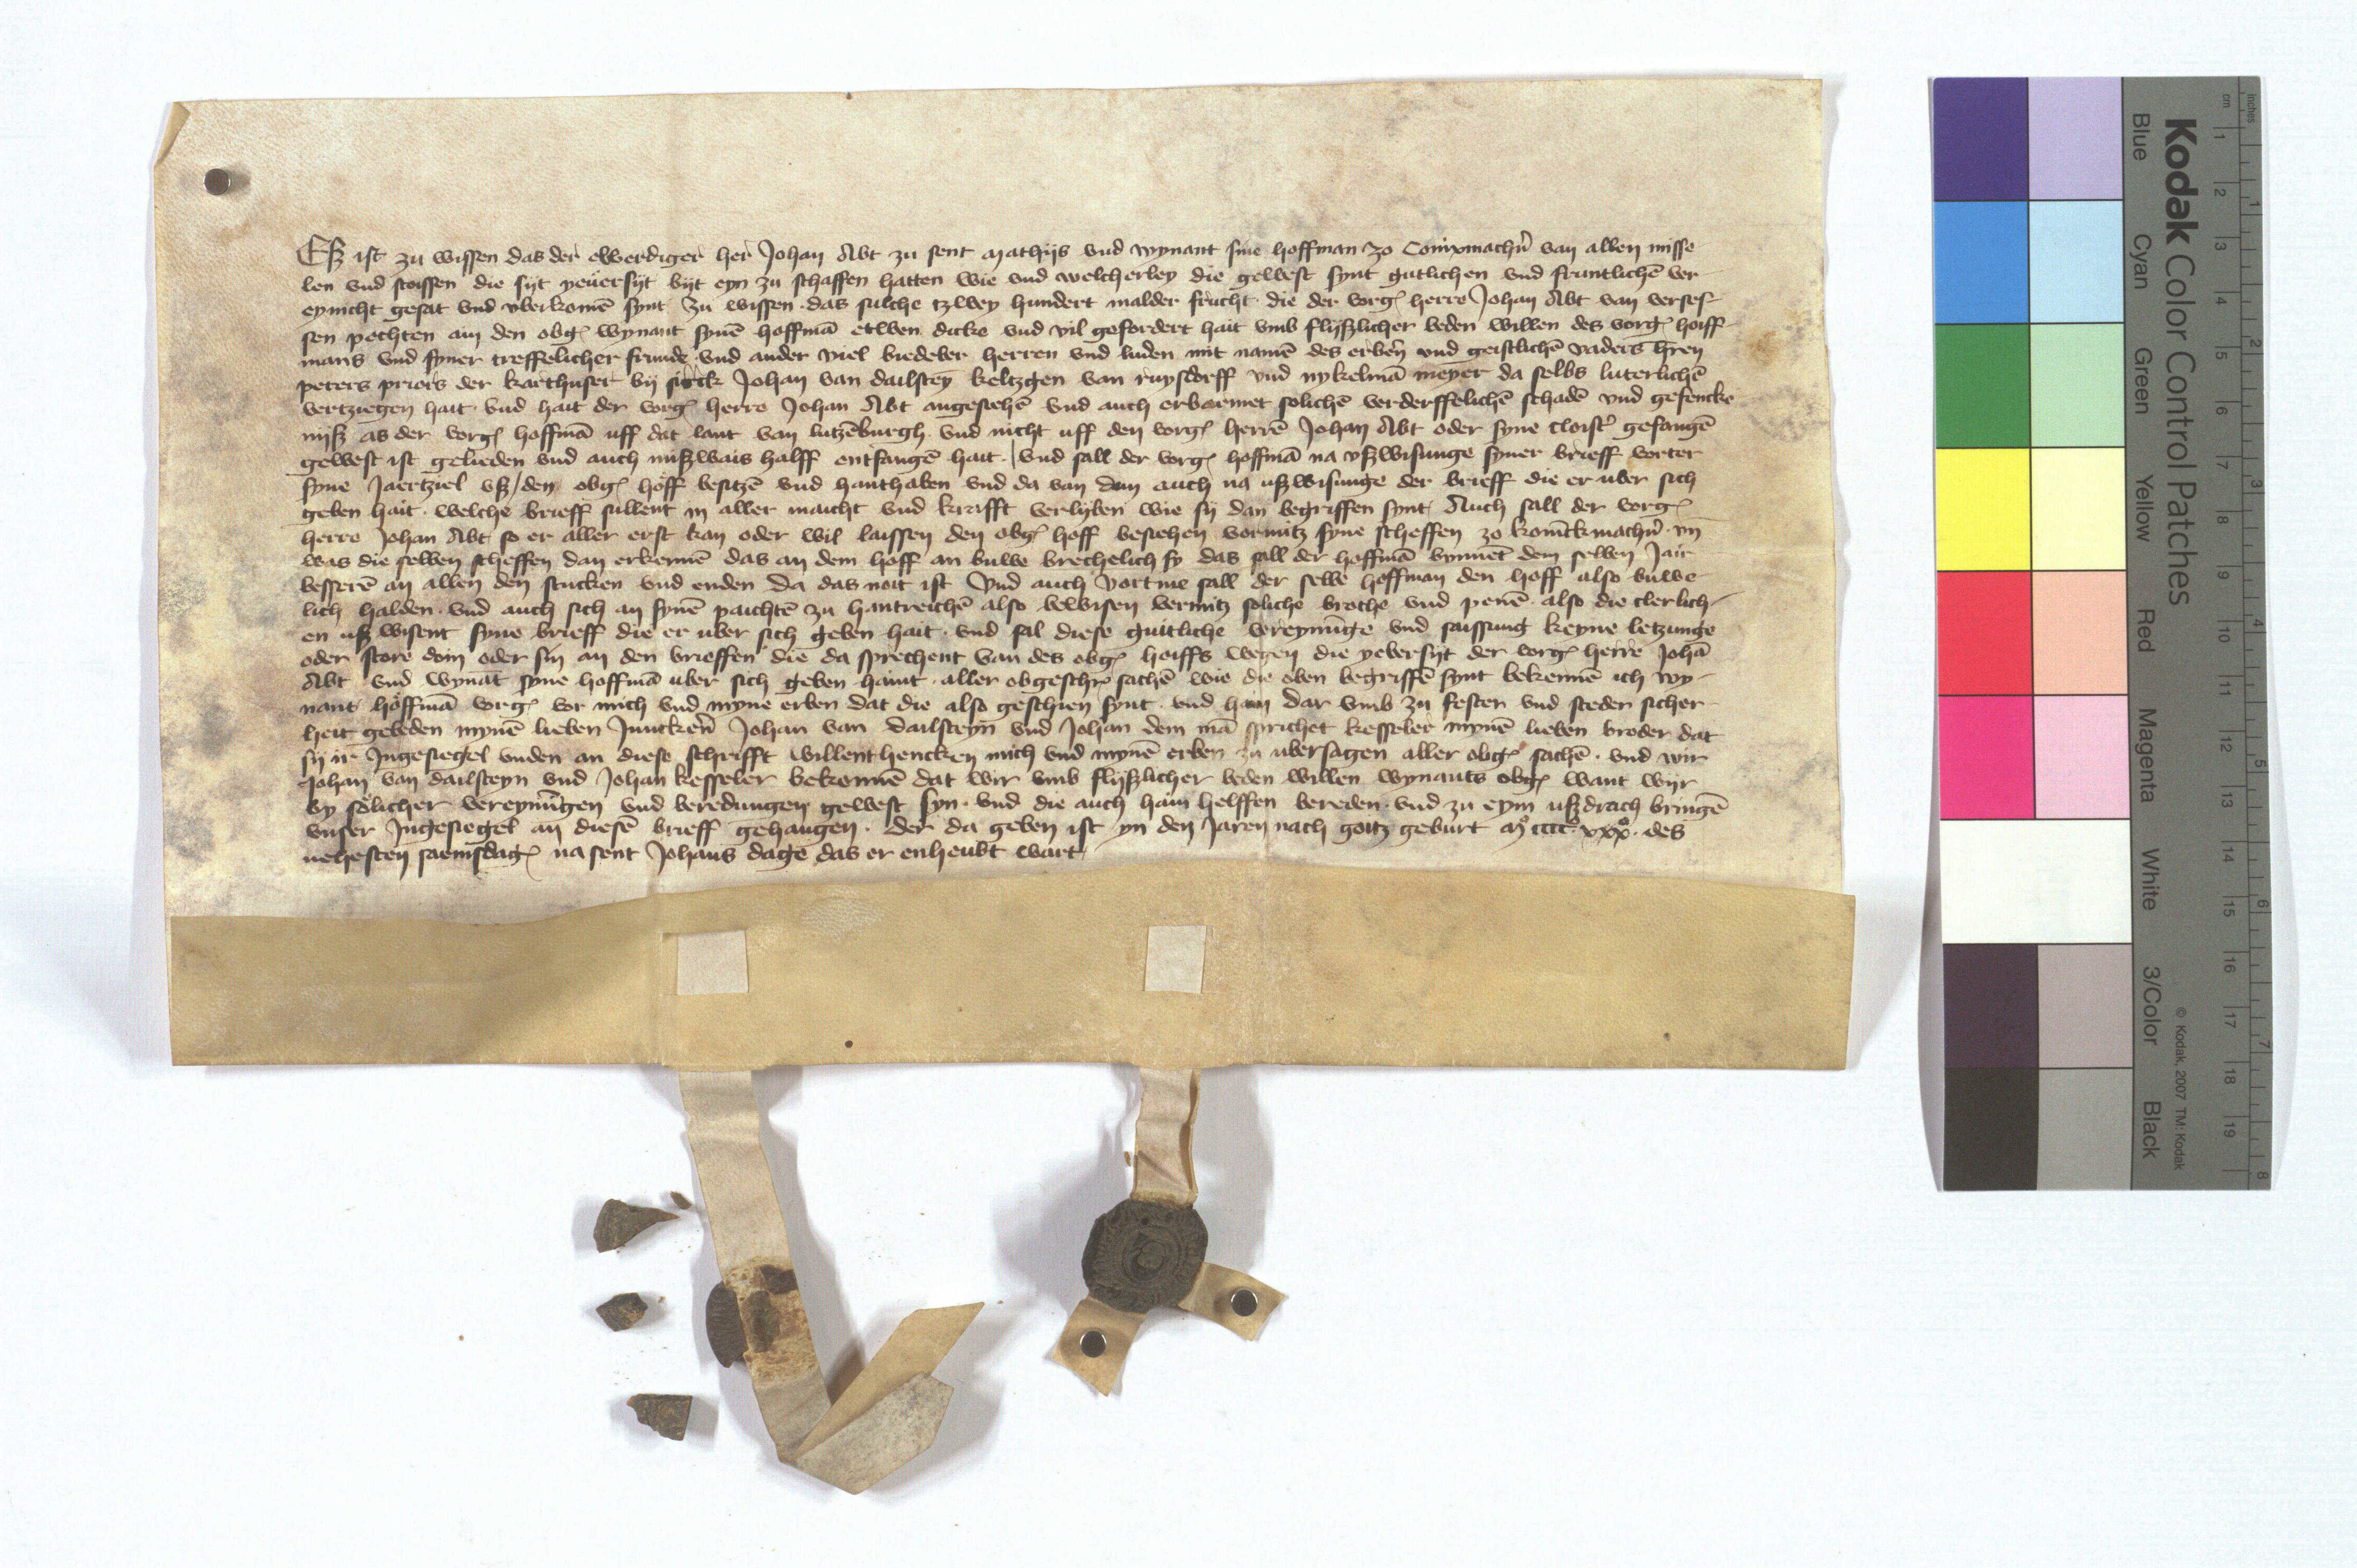 Eß ist zu wissen das der erwerdiger her Johan Abt zu sent Mathijs vnd wynant sine hoffman zo Comxmachn̄ van allen misse
len vnd stoissen die sijt yeuersijt bijt eyn zu schaffen hatten wie vnd welcherley die gewest synt gutlichen vnd fruntlichē ver
eynicht gesat vnd vberkomē synt Zu wissen das sulche tzwey hundert malder frucht die der vorg herre Johan Abt van verses
sen pechten an den obg wynant synē hoffmā etwen dicke vnd vil gefordert hait vmb flyßlicher beden willen des vorg hoiff
mans vnd syner treffelicher frunde vnd ander viel biedeber herren vnd luden mit namē des erbern̄ vnd geistlichē vaders hren
peters priors der karthuser bij sirck Johan van dailstey keltzgen van ruysdorff vnd nykelmā meyer da selbs luterlichē
vertziegen hait vnd hait der vorg herre Johan Abt angesehē vnd auch erbarmet solichē verderffelichē schadē vnd gefencke
nijß as der vorg hoffmā uff dat lant van lutzēburgh vnd nicht uff den vorg herrē Johan Abt oder syne cloistr gefangē
gewest ist gelieden vnd auch mißwais halff entfangē hait vnd sall der vorg hoffmā na vßwisunge syner brieff vorter
syne Jaertziel vß den obg hoff besitzē vnd hanthaben vnd da van dun auch na ußwisunge der brieff die er uber sich
geben hait welche brieff sullent in aller maicht vnd krafft verlyben wie sy dan begriffen synt Auch sall der vorg
herre Johan Abt so er aller erst kan oder wil laissen den obg hoff besehen vormitz syne scheffen zo komckmachn̄ vn
was die selben scheffen dan erkennē das an dem hoff an buwe brechelich sy das sall der hoffmā bynnēt dem selben Jair
besserē an allen den stucken vnd enden da das noit ist Vnd auch vortme sall der selbe hoffman den hoff also buwe
lich halden vnd auch sich an synē paichtē zu hantreichē also bewisen vermitz soliche broche vnd penē also die clerlich
en uß wisent syne brieff die er uber sich geben hait vnd sal diese guitliche vereynūge vnd saissung keyne letzunge
oder store doin oder sin an den brieffen die da sprechent van des obg hoiffs wegen die yebersijt der vorg herre Johā
Abt vnd wynāt syne hoffmā uber sich geben haint aller obgeschr sachē wie die oben begriffē synt bekennē ich wy
nant hoffmā vorg vor mich vnd myne erben dat die also geschien synt vnd hain dar vmb zu fester vnd steder sicher
heit gebeden mynē lieben Junckern̄ Johan van dailsteyn vnd Johan dem mā sprichet kesseler mynē lieben broder dat
sij ir Jngesiegel vnden an diese schrifft willent hencken mich vnd mynē erben zu ubersagen aller obg sachē vnd wir
Johan van dailsteyn vnd Johan kesseler bekennē dat wir vmb flyßlicher beden willen wynants obg want wijr
by solicher vereynūgen vnd beredungen gewest syn vnd die auch hain helffen bereden vnd zu eym ußdrach bringē
vnser Jngesiegel an diesē brieff gehangen der da geben ist yn den Jaren nach gottz geburt mº ccccº xxxº des
nehesten saemsdag na sent Johans dage das er enheubt wart
Kodak Color Control Patches
Blue Cyan Green Yellow Red Magenta White 3/Color Black
© Kodak, 2007 TM: Kodak
cm 1 2 3 4 5 6 7 8 9 10 11 12 13 14 15 16 17 18 19
inches 1 2 3 4 5 6 7 8